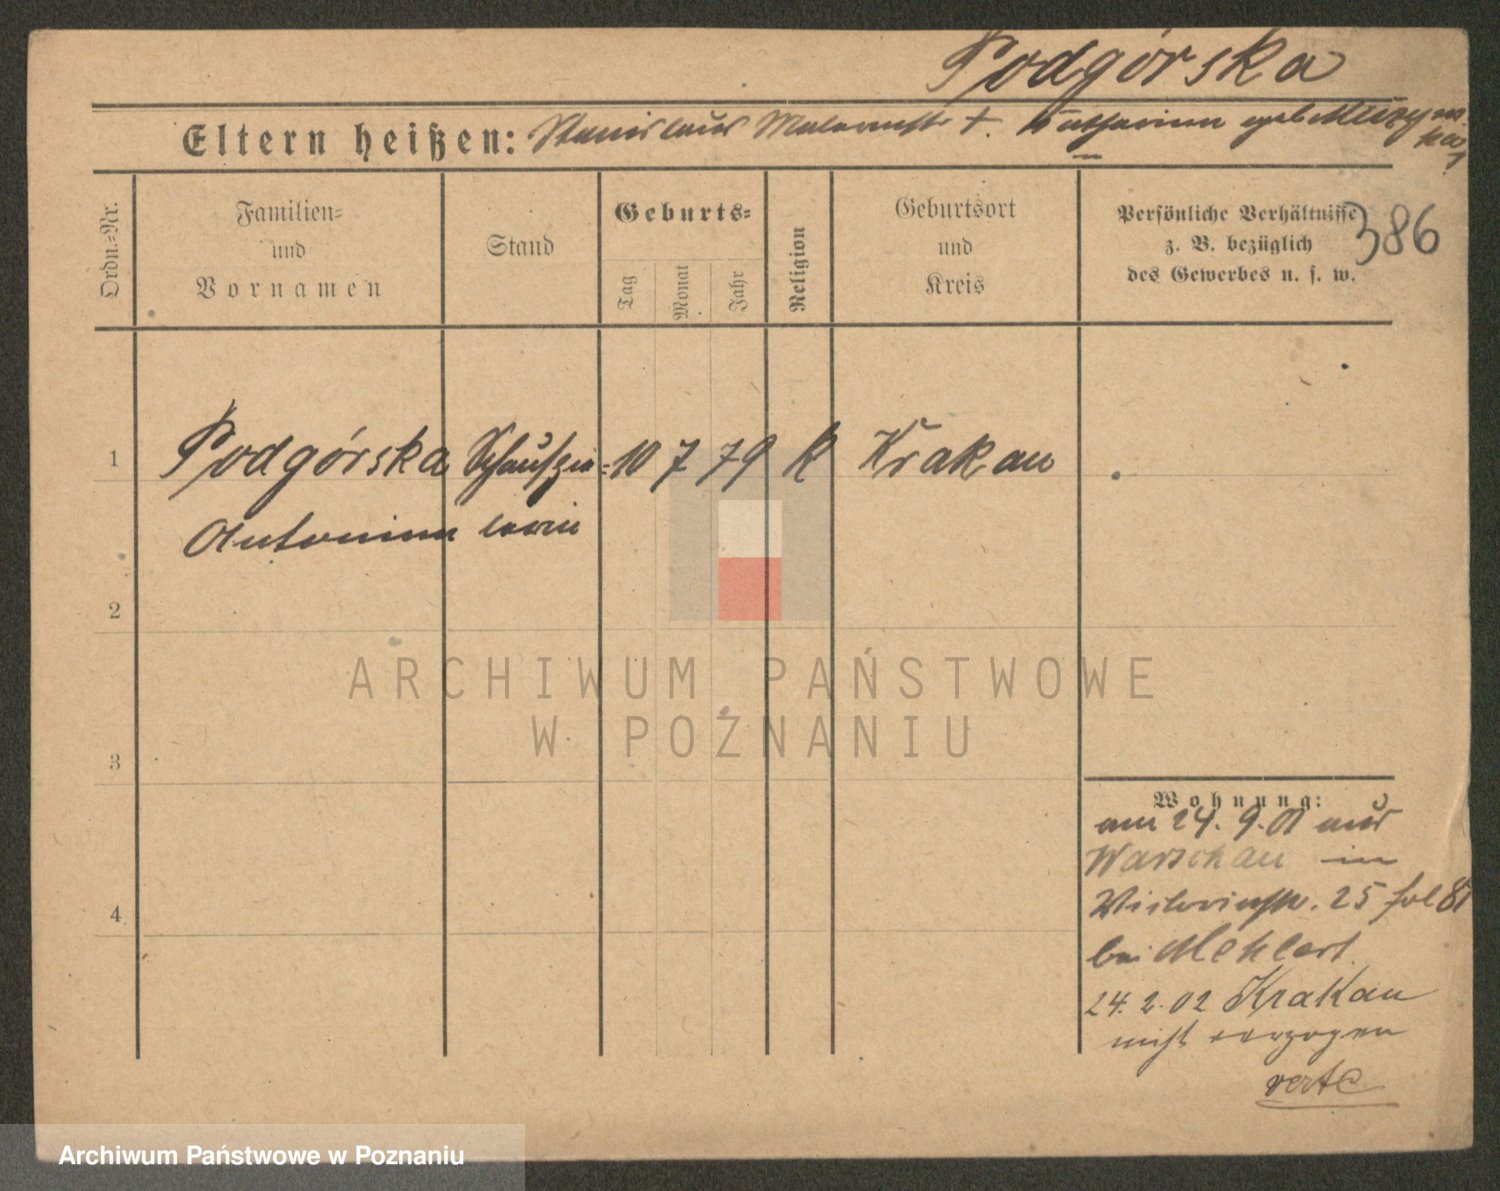 Podgórska
Eltern heißen: Stanislaus Malermstr †. Katharina geb.
386
Ordn.=Nr.
Familien=
und
Vornamen
Stand
Geburts=
Tag
Monat
Jahr
Religion
Geburtsort
und
Kreis
Persönliche Verhältnisse
z. B. bezüglich
des Gewerbes u. s. w.
1 Podgórska Schauspie= 10 7 79 k Krakau
Antonina lerin
2
3
4
Wohnung:
am 24. 9. 01 aus
Warschau in
25 fol 81
bei Mehlert.
24. 2. 02 Krakau
nicht verzogen
verte
ARCHIWUM PAŃSTWOWE
W POZNANIU
Archiwum Państwowe w Poznaniu